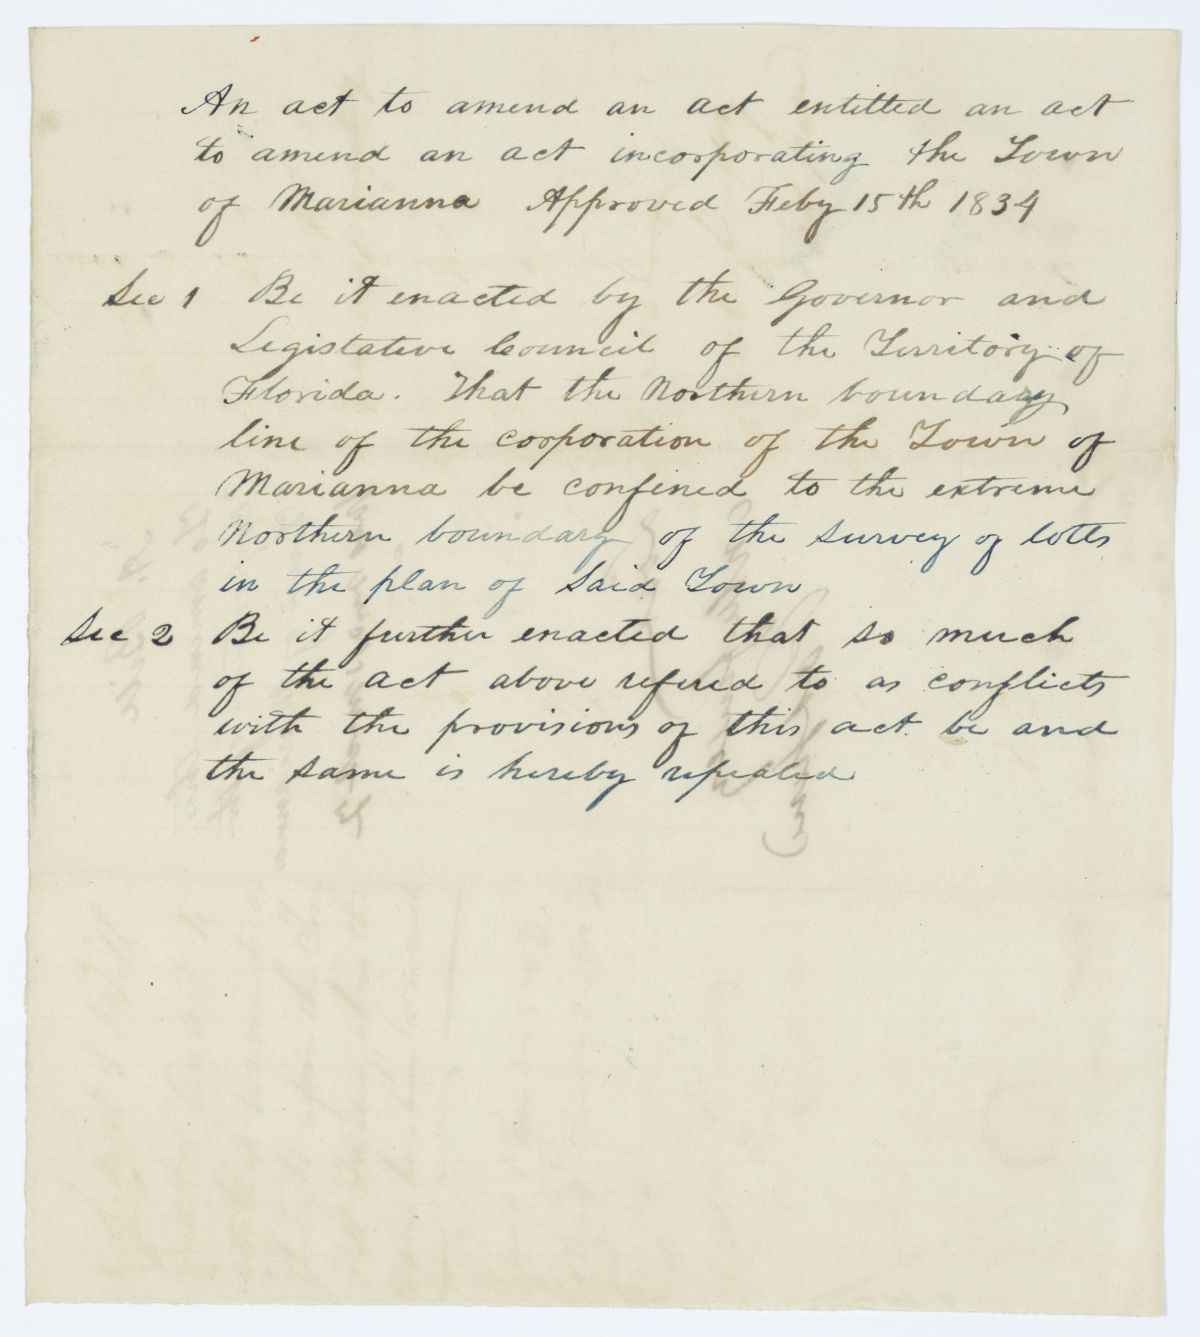 An act to amend an act entitled an act
to amend an act incorporating the Town
of Marianna Approved Feby 15th 1834
Sec 1 Be it enacted by the Governor and
Legislative Council of the Territory of
Florida. That the Northern boundary
line of the corporation of the Town of
Marianna be confined to the extreme
Northern boundary of the survey of lotts
in the plan of Said Town
Sec 2 Be it further enacted that so much
of the act above refered to as conflicts
with the provisions of this act be and
the same is hereby repealed